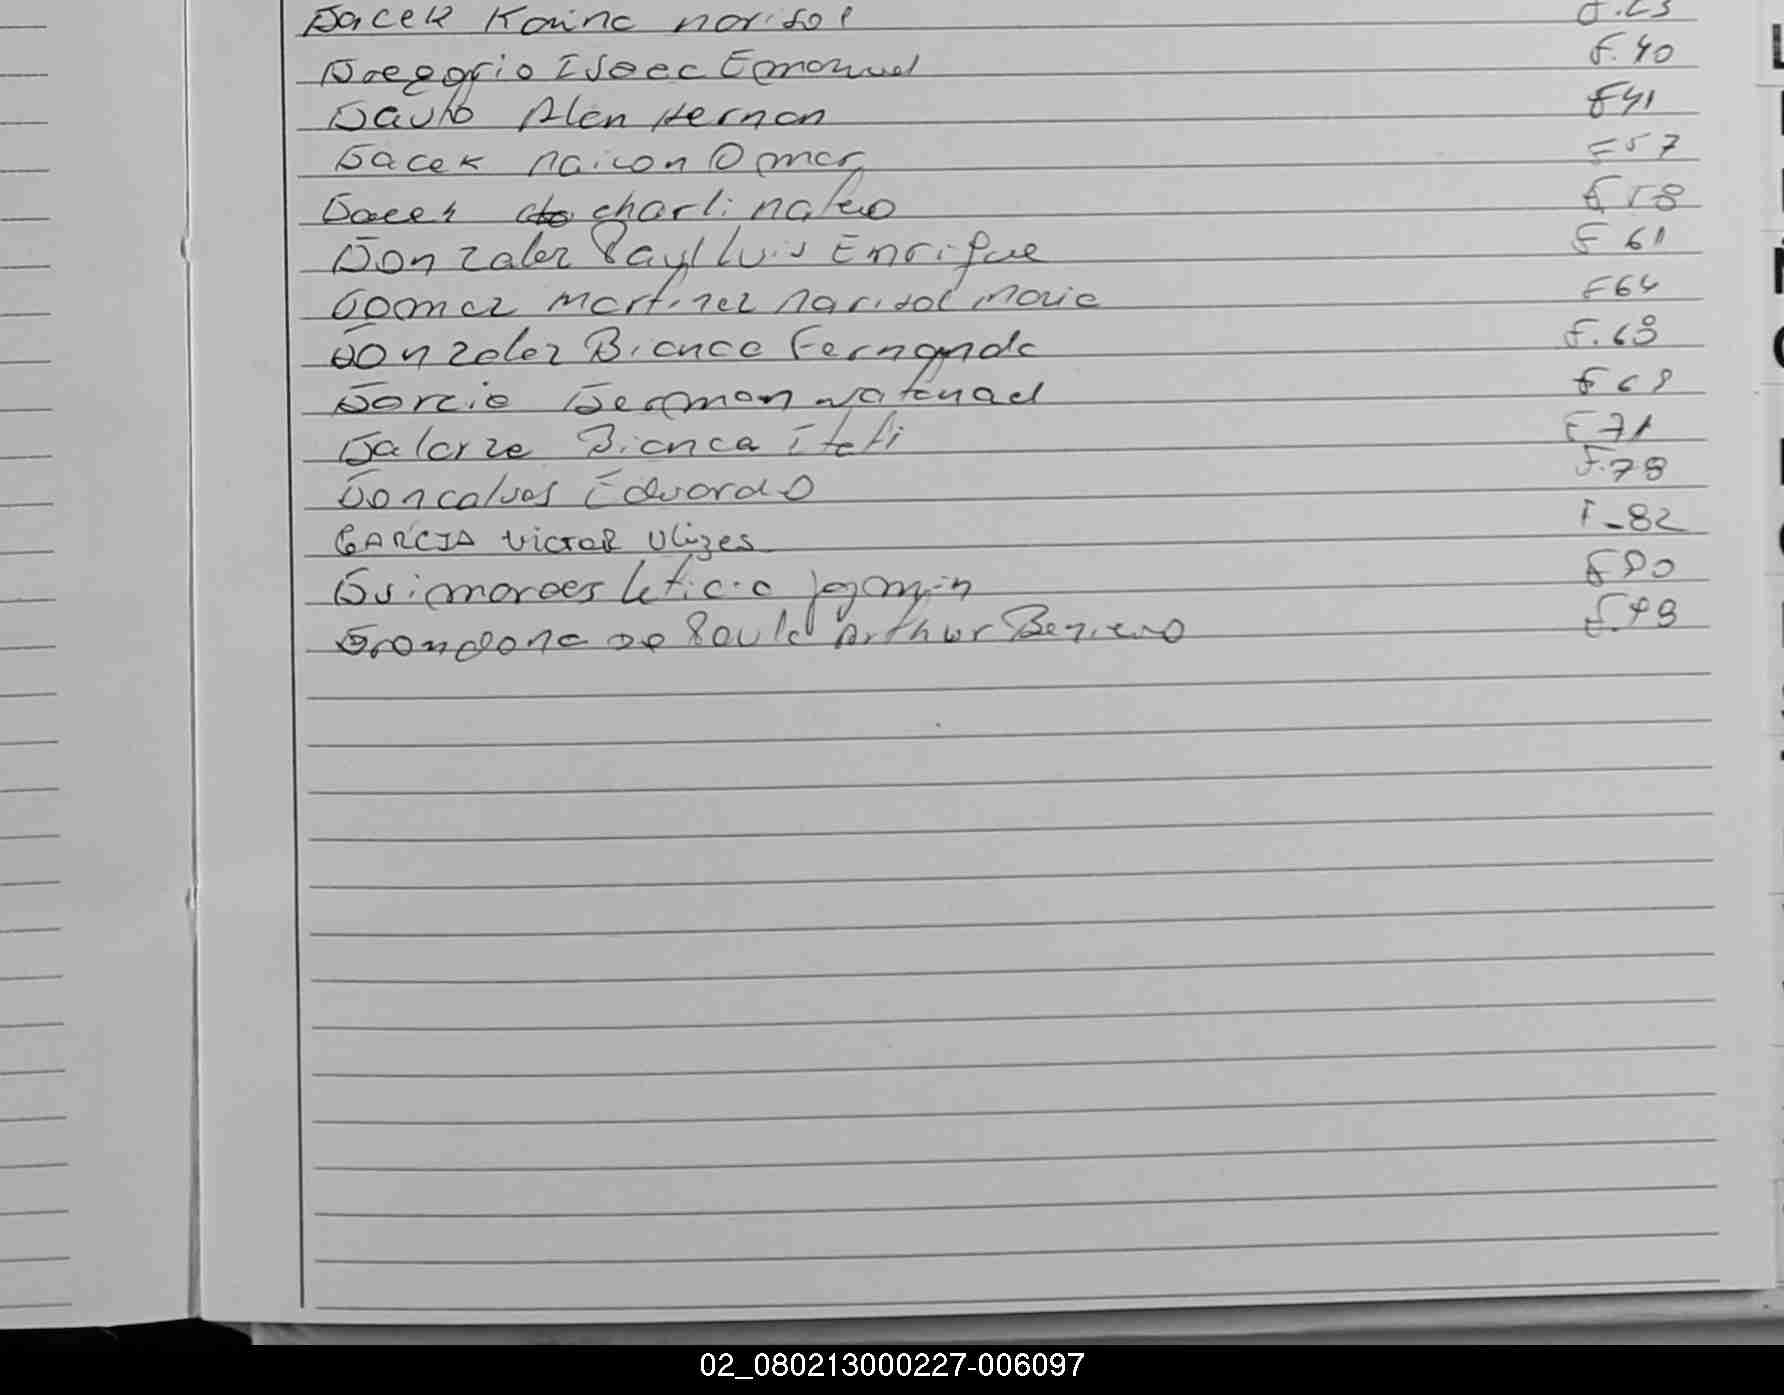 Gacek Karina Marisol F.23
Gregorio Isaac Emanuel F.40
Gauto Alan Hernan F41
Gacek Maicon Omar F57
Gacek charli mateo F58
Gonzalez Luis Enrique F 61
Gomez Martinez Marisol Maria F64
Gonzalez Bianca Fernanda F.68
Garcia German natanael F 69
Galarza Bianca Itati F 71
Goncalves Eduardo F.78
GARCIA VICTOR Ulizes F-82
Guimaraes Leticia F90
Grondona de Paula Arthur F.98
02_080213000227-006097